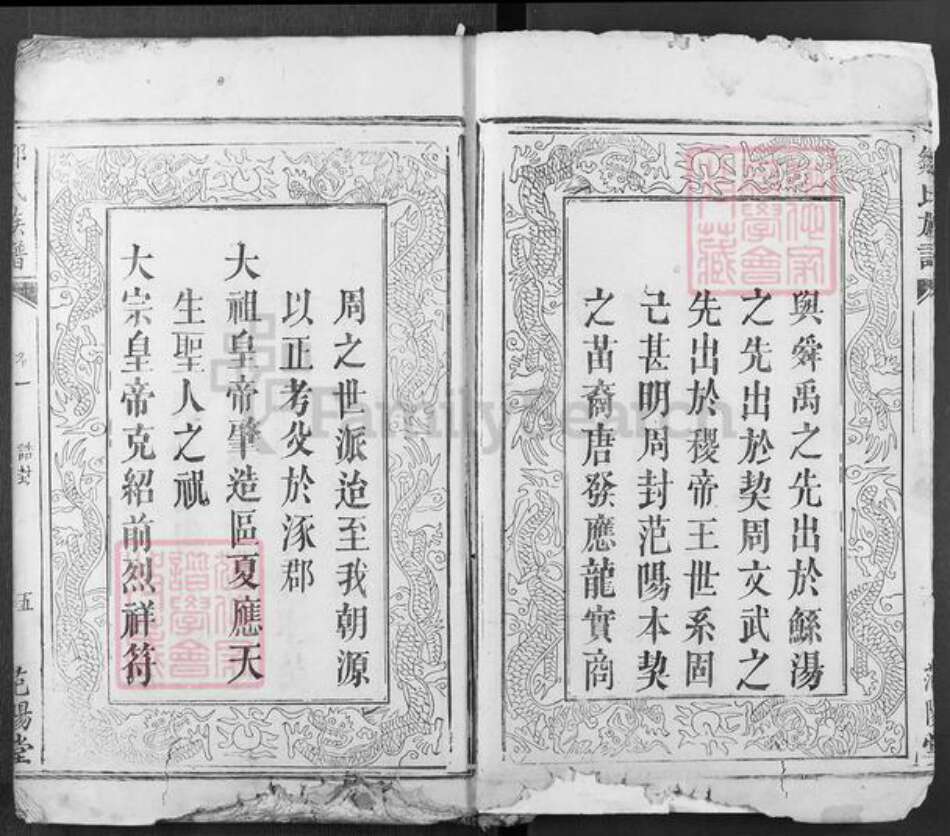 與舜禹之先出於鯀湯
之先出於契周文武之
先出於稷帝王世系固
己甚明周封范陽本契
之苗裔唐發應龍實商
周之世派迨至我朝源
以正考父於涿郡
大祖皇帝肇造區夏應天
生聖人之祝
大宗皇帝克紹前烈祥符
氏族譜
卷一
誥封
五
范陽堂
FamilySearch